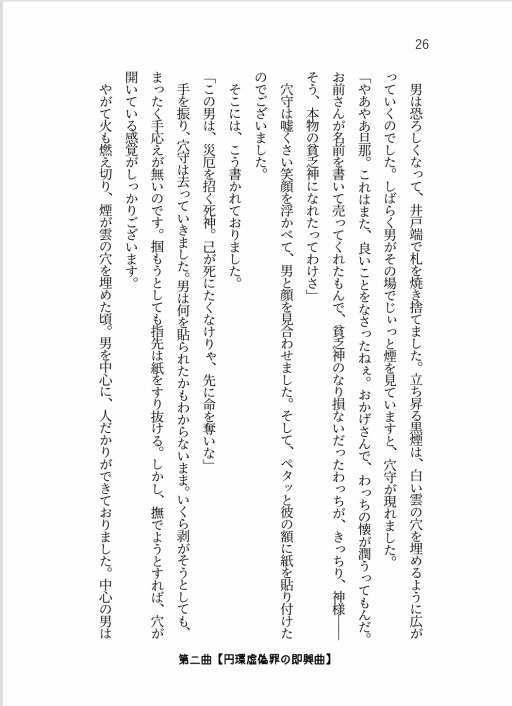 26
　男は恐ろしくなって、井戸端で札を焼き捨てました。立ち昇る黒煙は、白い雲の穴を埋めるように広が
っていくのでした。しばらく男がその場でじぃっと煙を見ていますと、穴守が現れました。
「やあやあ旦那。これはまた、良いことをなさったねぇ。おかげさんで、わっちの懐が潤うってもんだ。
お前さんが名前を書いて売ってくれたもんで、貧乏神のなり損ないだったわっちが、きっちり、神様――
そう、本物の貧乏神になれたってわけさ」
　穴守は嘘くさい笑顔を浮かべて、男と顔を見合わせました。そして、ペタッと彼の額に紙を貼り付けた
のでございました。
　そこには、こう書かれておりました。
「この男は、災厄を招く死神。己が死にたくなけりゃ、先に命を奪いな」
　手を振り、穴守は去っていきました。男は何を貼られたかもわからないまま。いくら剥がそうとしても、
まったく手応えが無いのです。掴もうとしても指先は紙をすり抜ける。しかし、撫でようとすれば、穴が
開いている感覚がしっかりございます。
　やがて火も燃え切り、煙が雲の穴を埋めた頃。男を中心に、人だかりができておりました。中心の男は
第二曲【円環虚偽罪の即興曲】